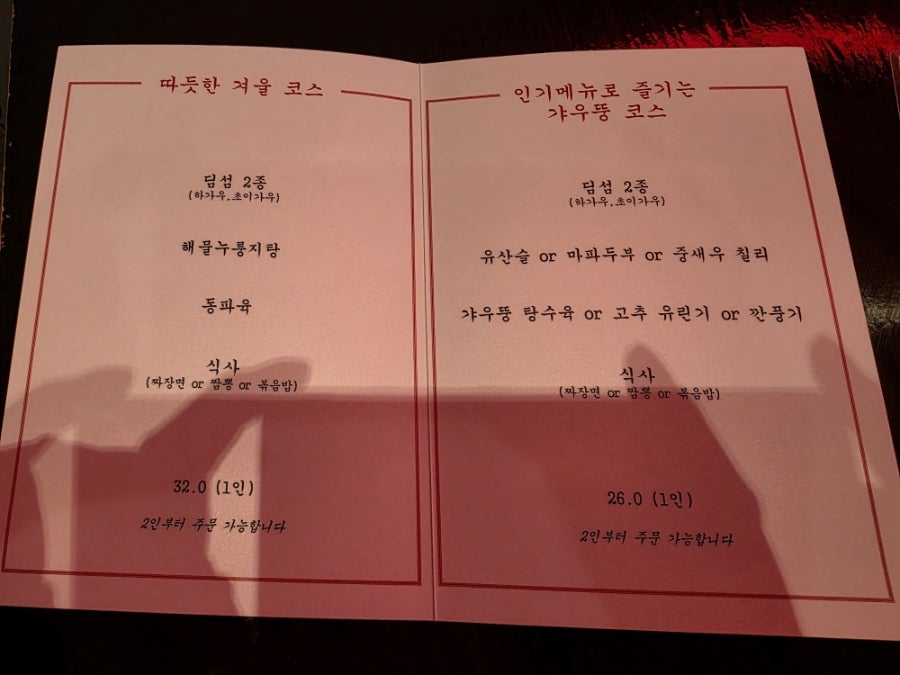 따듯한 겨울 코스
딤섬 2종
(하가우.초이가우)
해물누룽지탕
동파육
식사
(짜장면 or 짬뽕 or 볶음밥)
32.0 (1인)
2인부터 주문 가능합니다
인기메뉴로 즐기는
갸우뚱 코스
딤섬 2종
(하가우.초이가우)
유산슬 or 마파두부 or 중새우 칠리
갸우뚱 탕수육 or 고추 유린기 or 깐풍기
식사
(짜장면 or 짬뽕 or 볶음밥)
26.0 (1인)
2인부터 주문 가능합니다